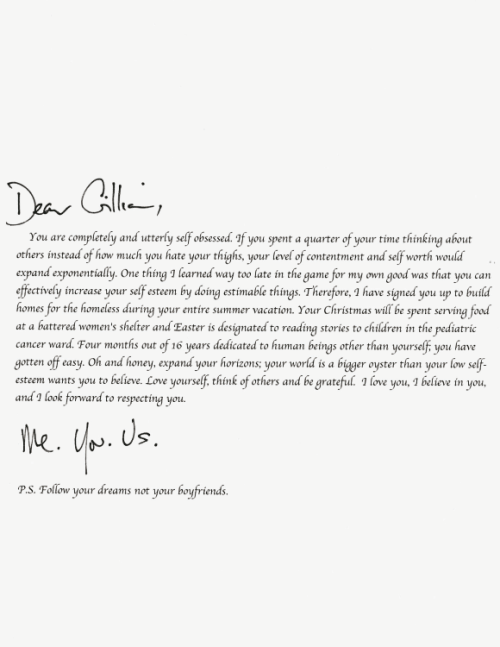 Dear Gillian,
You are completely and utterly self obsessed. If you spent a quarter of your time thinking about
others instead of how much you hate your thighs, your level of contentment and self worth would
expand exponentially. One thing I learned way too late in the game for my own good was that you can
effectively increase your self esteem by doing estimable things. Therefore, I have signed you up to build
homes for the homeless during your entire summer vacation. Your Christmas will be spent serving food
at a battered women's shelter and Easter is designated to reading stories to children in the pediatric
cancer ward. Four months out of 16 years dedicated to human beings other than yourself; you have
gotten off easy. Oh and honey, expand your horizons; your world is a bigger oyster than your low self-
esteem wants you to believe. Love yourself, think of others and be grateful. I love you, I believe in you,
and I look forward to respecting you.
Me. You. Us.
P.S. Follow your dreams not your boyfriends.